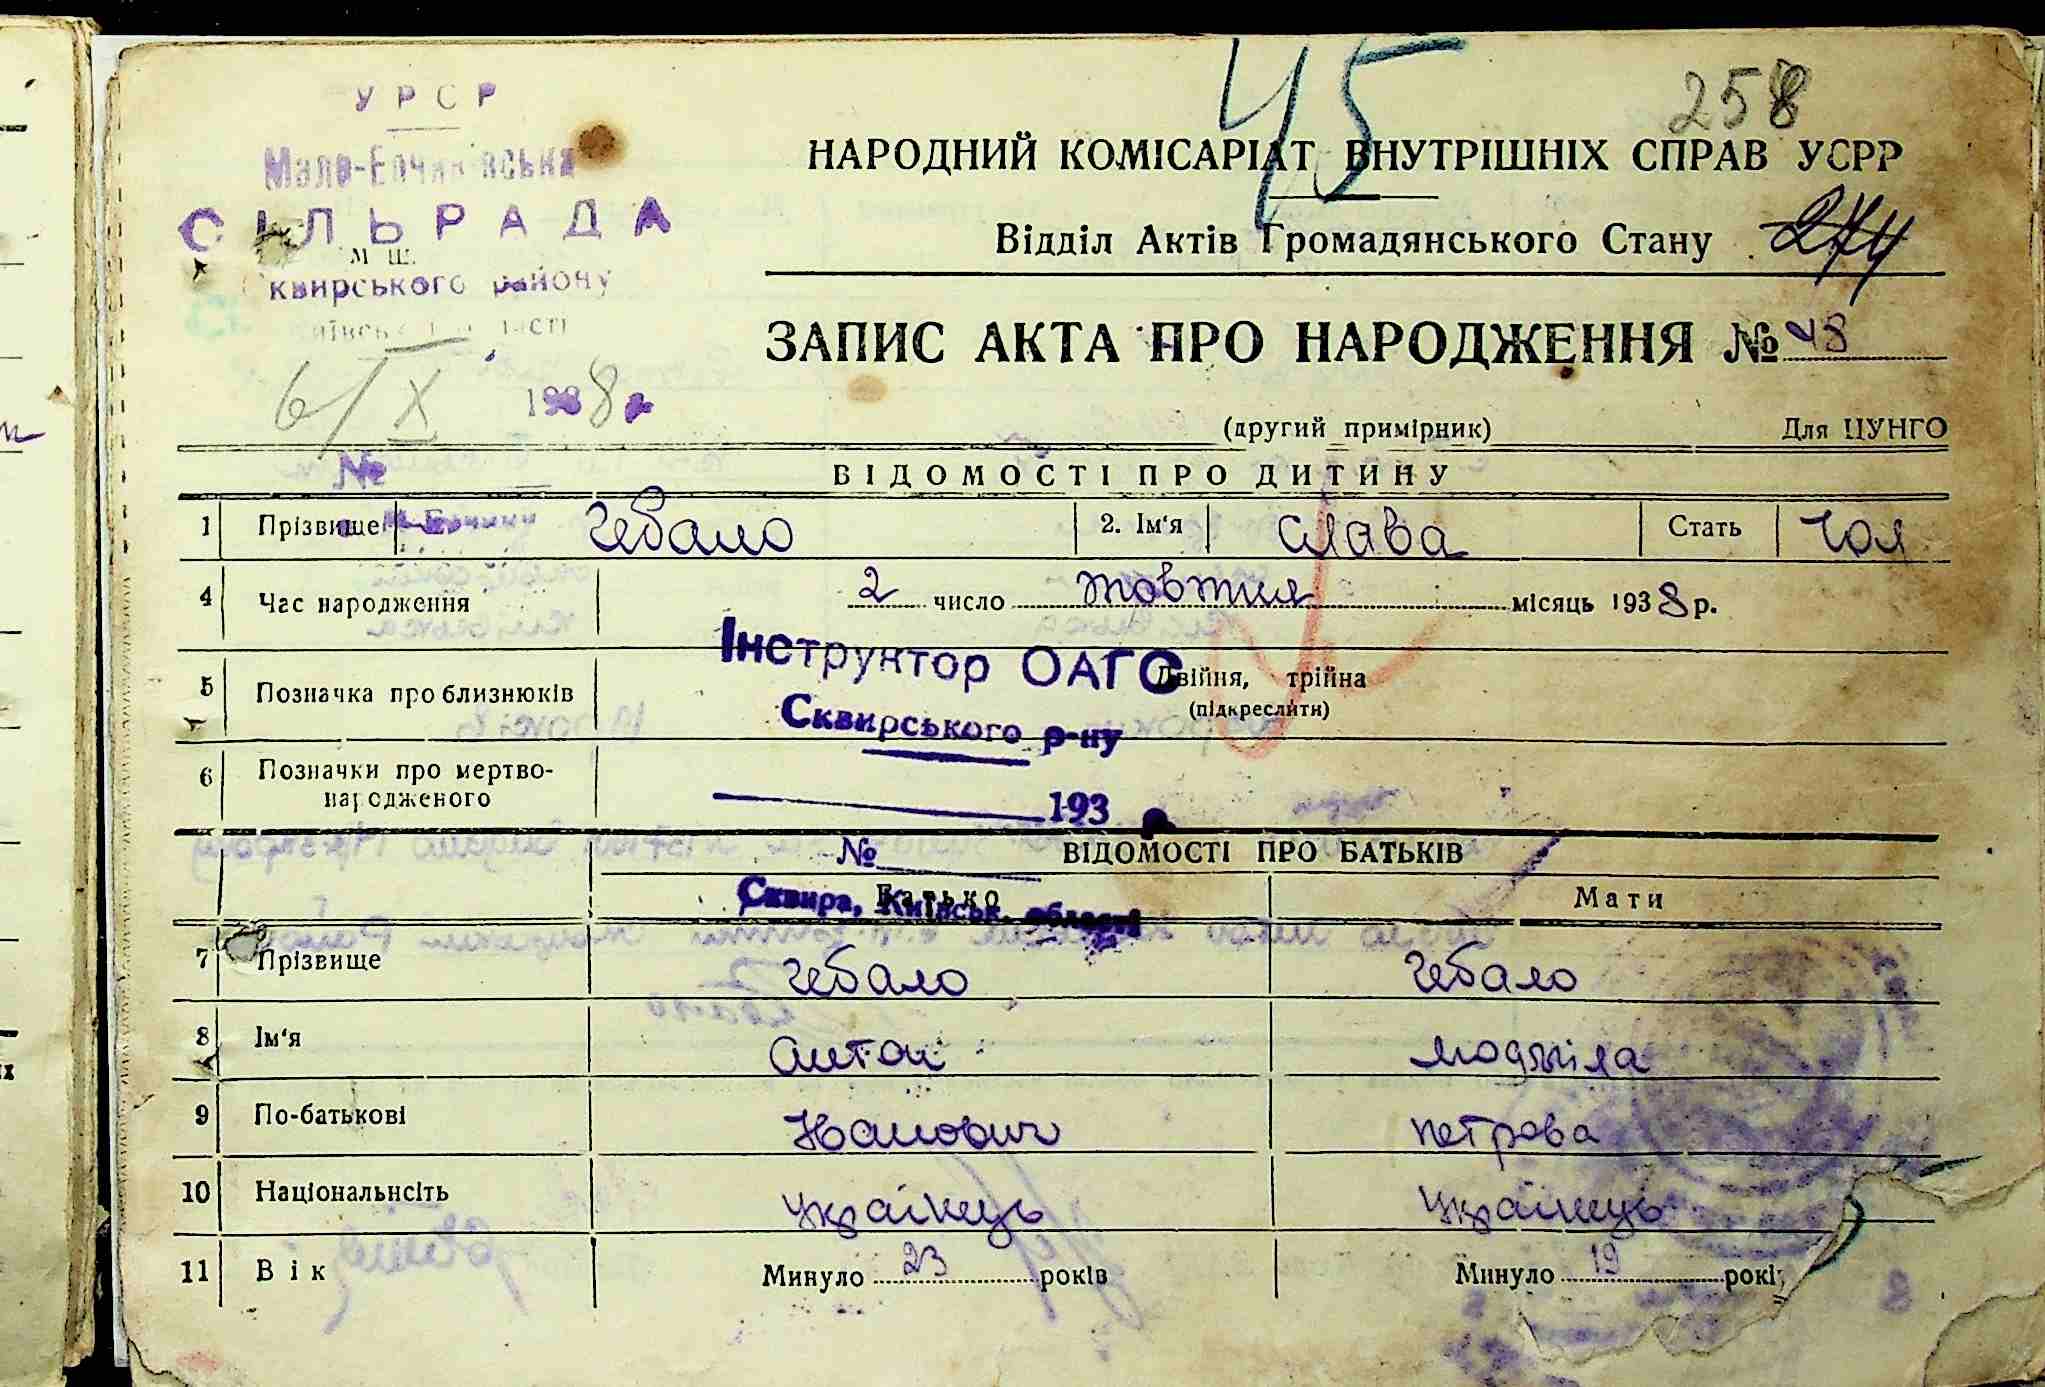 УРСР
Мало-Єрчиківська
СІЛЬРАДА
Сквирського району
6/X 1938 р
№
45
258
НАРОДНИЙ КОМІСАРІАТ ВНУТРІШНІХ СПРАВ УСРР
Відділ Актів Громадянського Стану
ЗАПИС АКТА ПРО НАРОДЖЕННЯ № 48
(другий примірник) Для ЦУНГО
ВІДОМОСТІ ПРО ДИТИНУ
1 Прізвище Чебало 2. Ім'я Слава Стать Чол
4 Час народження 2 число жовтня місяць 1938 р.
Інструктор ОАГС
5 Позначка про близнюків Двійня, трійня
(підкреслити)
Сквирського р-ну
6 Позначки про мертво-
народженого
193 р.
№ ВІДОМОСТІ ПРО БАТЬКІВ
Батько Мати
Сквира, Київськ. області
7 Прізвище Чебало Чебало
8 Ім'я Антон Людміла
9 По-батькові Іванович Петрова
10 Національнсіть Українець Українець
11 Вік Минуло 23 років Минуло 19 рокі